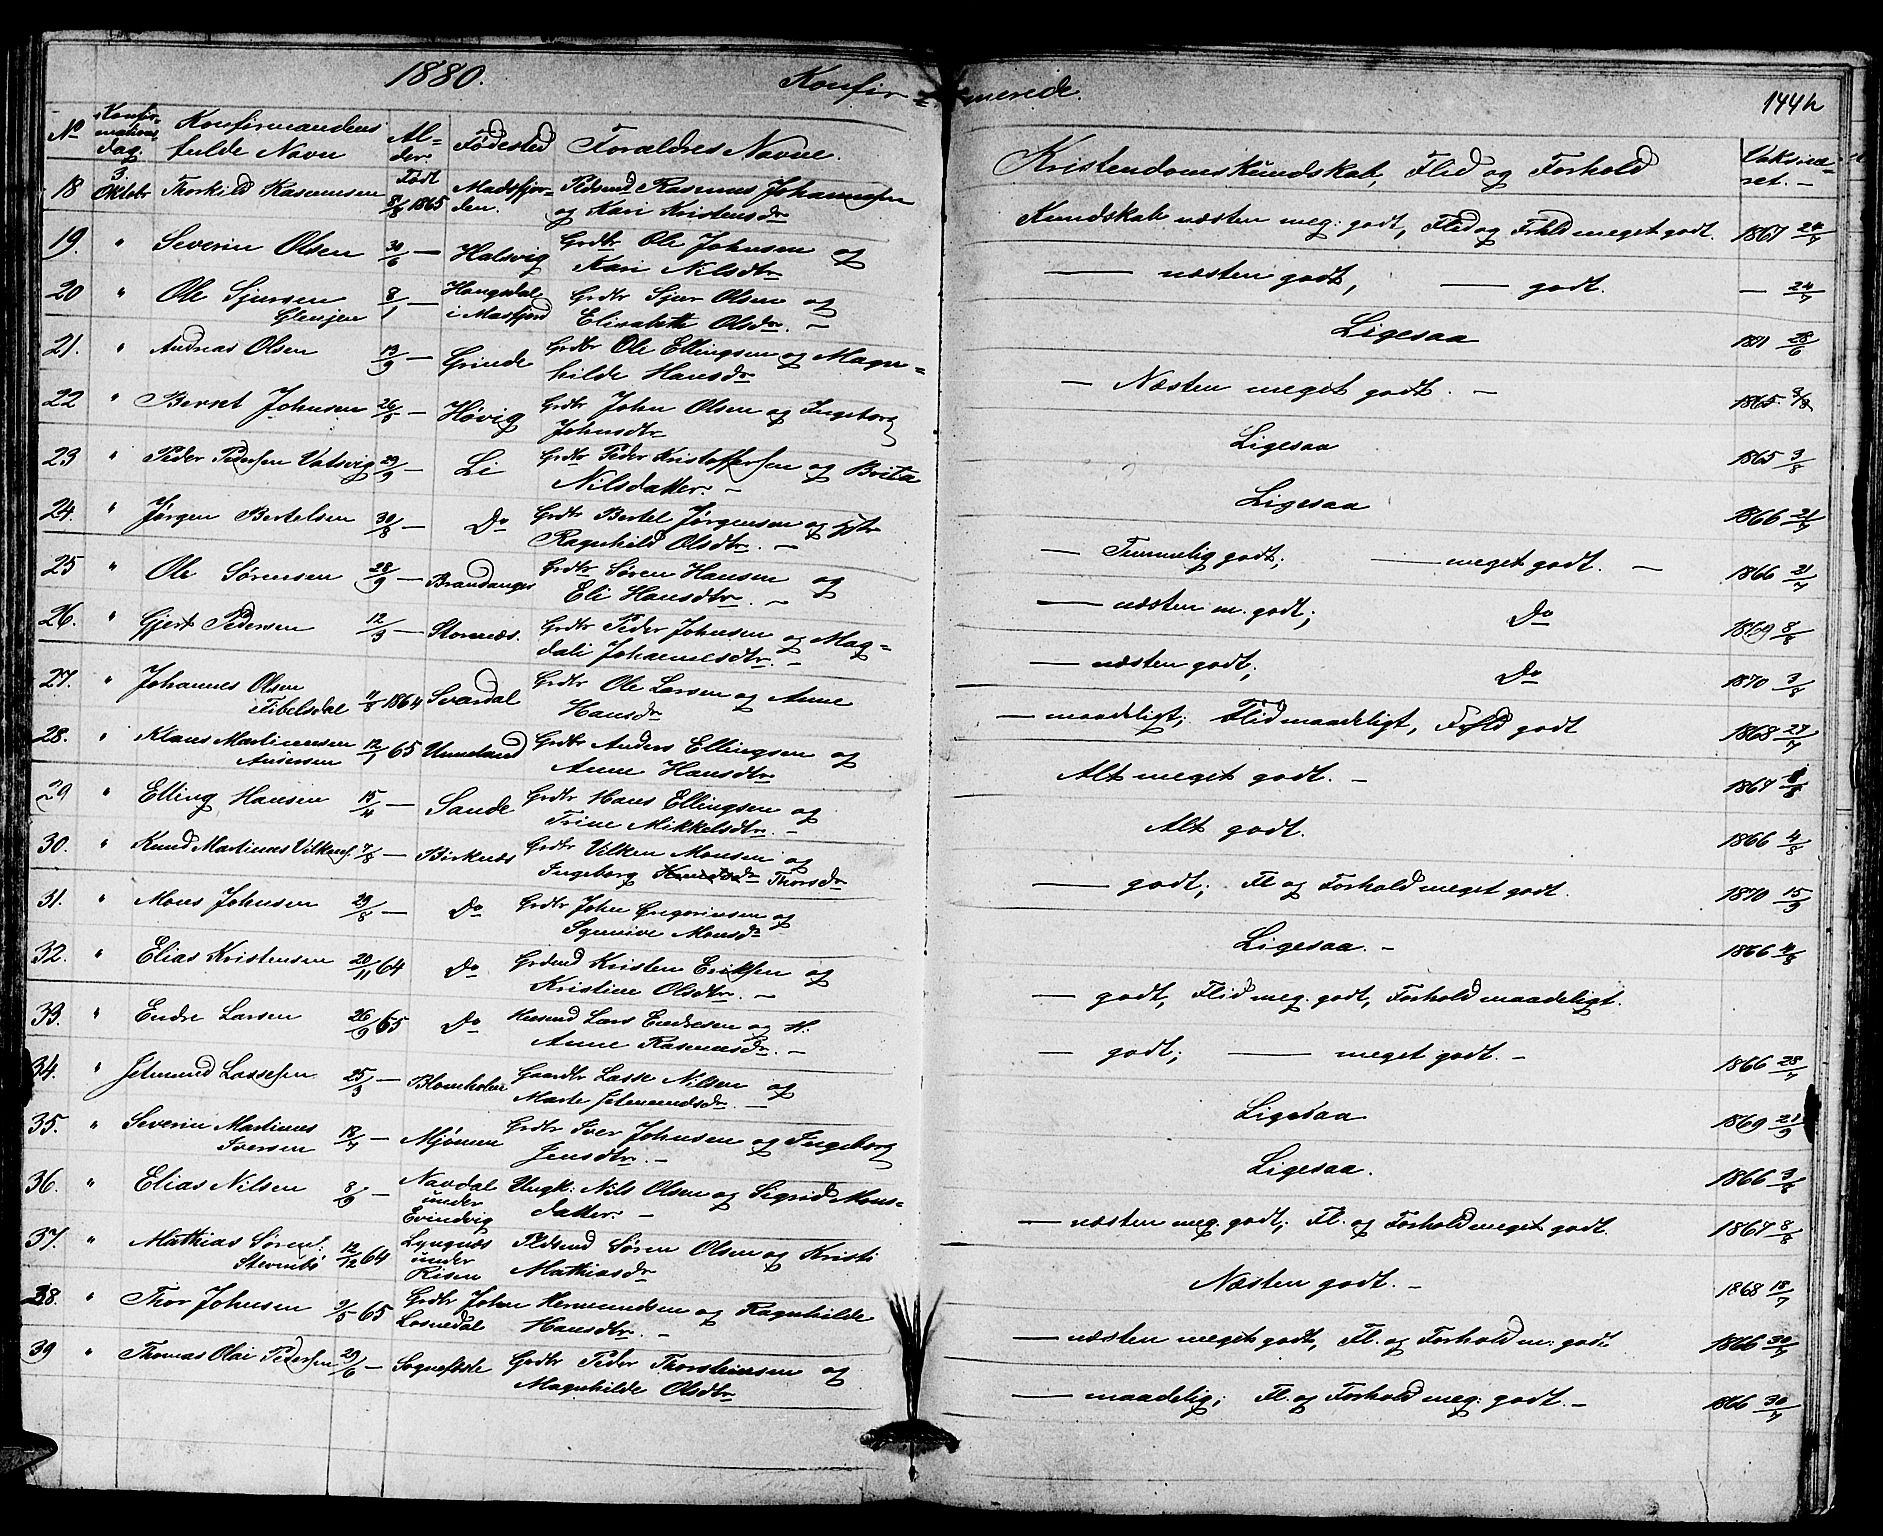 1880. Konfirmerede. 144
No Konfirmations dag. Konfirmandens fulde Navn Alder Fødested Forældres Navne. Kristendomskundskab, Flid og Forhold
18 3 Oktobr Thorkild Rasmussen Født 8/8 1865 Madsfjorden. Pldsmd Rasmus Johannesen
og Kari Kristensdr Kundskab næsten meg: godt, Flid og Frhld meget godt. 1867 24/7
19. " Severin Olsen 30/6 — Halsvig Grdbr Ole Johnsen og
Kari Nilsdtr — næsten godt, — godt. — 24/7
20 " Ole Sjursen 8/1 — Haugsdal Grdbr Sjur Olsen og
i Masfjord Elisabeth Olsdr. — Ligesaa 28/6
21. " Andreas Olsen 13/9 — Grinde Grdbr Ole Ellingsen og Magn=
hilde Hansdr — Næsten meget godt. — 1865
22 " Berset Johnsen 26/5 — Høvig Grdbr John Olsen og Ingeborg
Johnsdtr Ligesaa 1865 3/8
23 " Peder Pedersen Vatsvig 29/9 — Li Grdbr Peder Kristoffersen og Brita
Nilsdatter. — Ligesaa 1866 21/7
24. " Jørgen Bertelsen 30/8 — Do Grdbr Bertel Jørgensen og
Ragnhild Olsdtr. — — Temmelig godt; — meget godt. — 1866 21/7
25 " Ole Sørensen 28/9 — Brandanger Grdbr Søren Hansen og
Eli Hansdtr. — — næsten m. godt; Do 1869 8/8
26. " Gjert Pedersen 12/9 — Storenæs. Grdbr Peder Johnsen og Mag=
dali Johannesdtr. — — næsten godt; Do 1870 3/8
27. " Johannes Olsen 11/8 1864 Svardal Grdbr Ole Larsen og Anne
Hansdr — maadeligt; Flid maadeligt, godt 1868 27/7
28. " Klaus Martinussen 12/1 65 Unneland Grdbr Anders Ellingsen og
Andersen Anne Hansdtr Alt meget godt. — 1867
29 " Elling Hansen 15/4 — Sande Grdbr Hans Ellingsen og
Trine Mikkelsdtr. — Alt godt. 1866 4/8
30. " Knud Martinus Vilkens. 7/8 — Birknæs Grdbr Vilken Monsen og
Ingeborg Thorsdr — godt; Fl og Forhold meget godt. 1870 15/9
31. " Mons Johnsen 29/8 — Do Grdbr John Gregoriusen og
Synnive Monsdr Ligesaa. — 1866 4/8
32. " Elias Kristensen 20/11 64 Do Grdmd Kristen Eriksen og
Kristine Olsdtr. — — godt, Flid meg. godt, Forhold maadeligt.
33. " Endre Larsen 26/9 65 Do Husmd Lars Endresen og H:
Anne Rasmusdr. — — godt; — meget godt. — 1866 28/7
34. " Jetmund Lassesen 25/3 — Blomholm Gaardbr Lasse Nilsen og
Marte Jetmundsdr. — Ligesaa 1869 21/9
35. " Severin Martinus 18/7 — Mjømen Grdbr Iver Johnsen og Ingeborg
Iversen Jensdtr. — Ligesaa. 1866 3/8
36. " Elias Nilsen 8/9 — Navdal Ungk: Nils Olsen og Sigrid Mons=
under datter. —
Evindvig — næsten meg. godt; Fl. og Forhold meget godt. 1867 8/8
37. " Mathias Sørens: 12/12 64 Lyngnæs Pldsmd Søren Olsen og Kristi
Sternebø under Mathiasdr
Risen Næsten godt. — 1868 18/7
38. " Thor Johnsen 9/5 65 Grdbr John Hermundsen og Ragnhilde
Losnedal Hansdtr. — — næsten meget godt, Fl. og Forhold m. godt 1866 30/7
39 " Thomas Olai Pedersen 29/6 — Sognefæste Grdbr Peder Thorsteinsen og
Magnhilde Olsdtr — maadelig; Fl. og Forhold meg: godt. — 1866 30/7